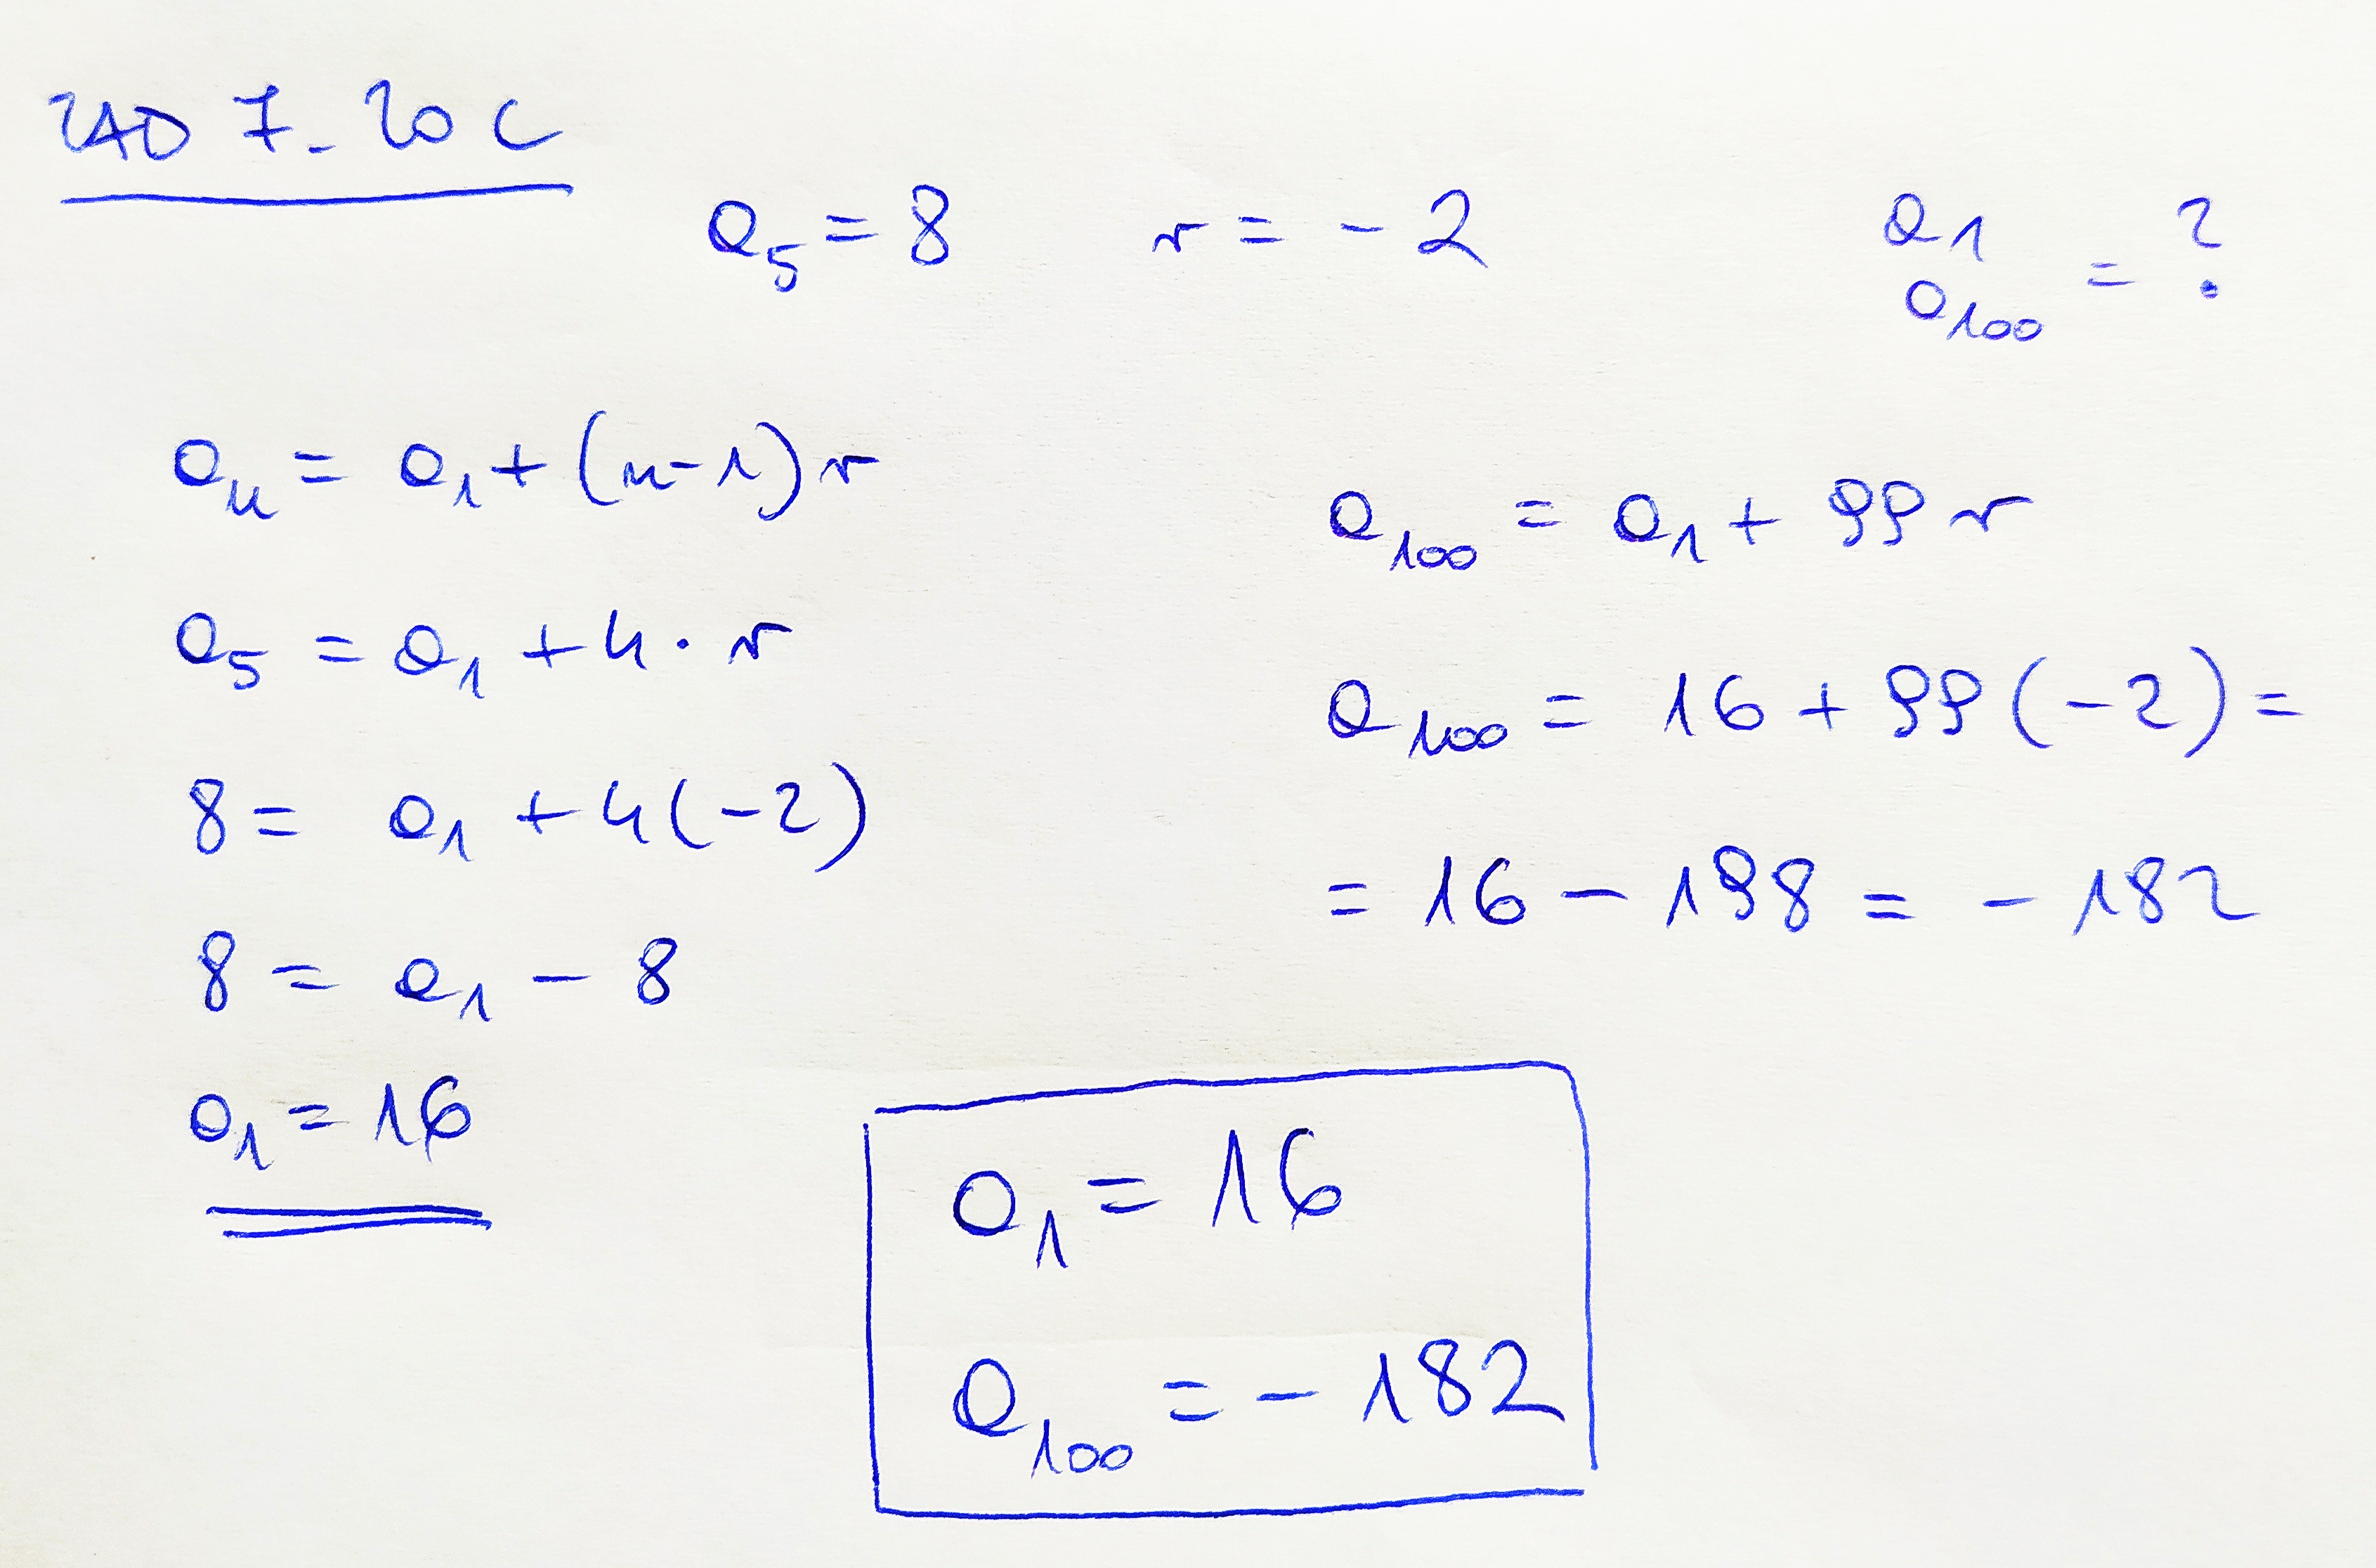 ZAD 7.20 C
a₅ = 8 r = -2 a₁ a₁₀₀ = ?
aₙ = a₁ + (n-1)r
a₅ = a₁ + 4 · r
8 = a₁ + 4(-2)
8 = a₁ - 8
a₁ = 16
a₁₀₀ = a₁ + 99 r
a₁₀₀ = 16 + 99(-2) =
= 16 - 198 = - 182
a₁ = 16
a₁₀₀ = - 182